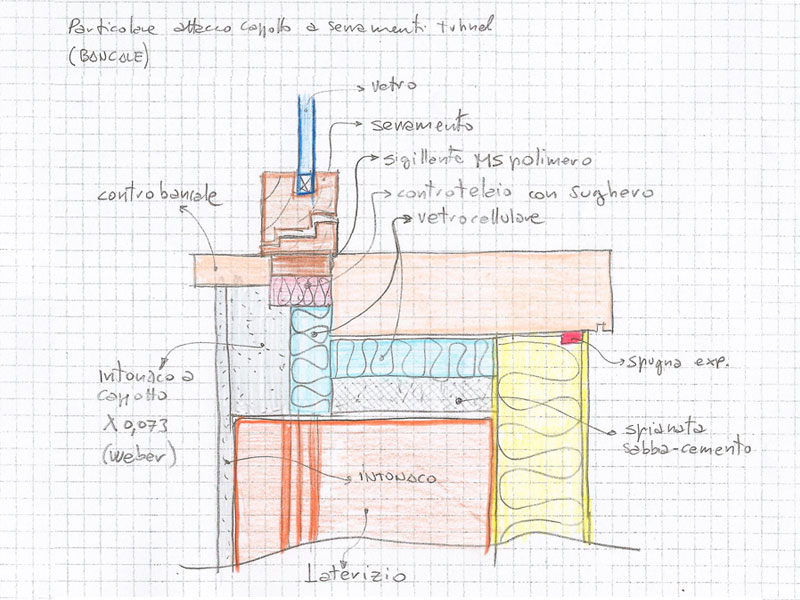 Particolare attacco cappotto a serramenti tunnel
(BANCALE)
vetro
serramento
sigillante MS polimero
controtelaio con sughero
vetrocellulare
controbancale
spugna exp.
intonaco a
cappotto
X 0,073
(weber)
spianata
sabba-cemento
INTONACO
Laterizio